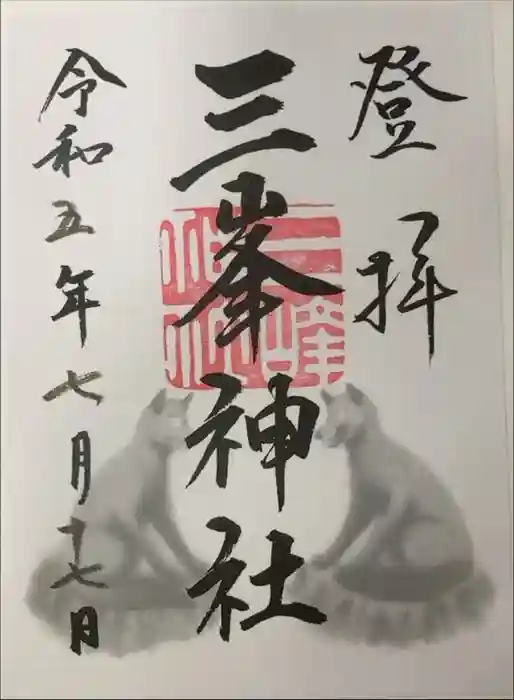 登拝
三峯神社
令和五年七月十七日
三峰神社